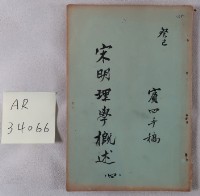 癸巳
賓四手稿
宋明理學概述
AR
34066